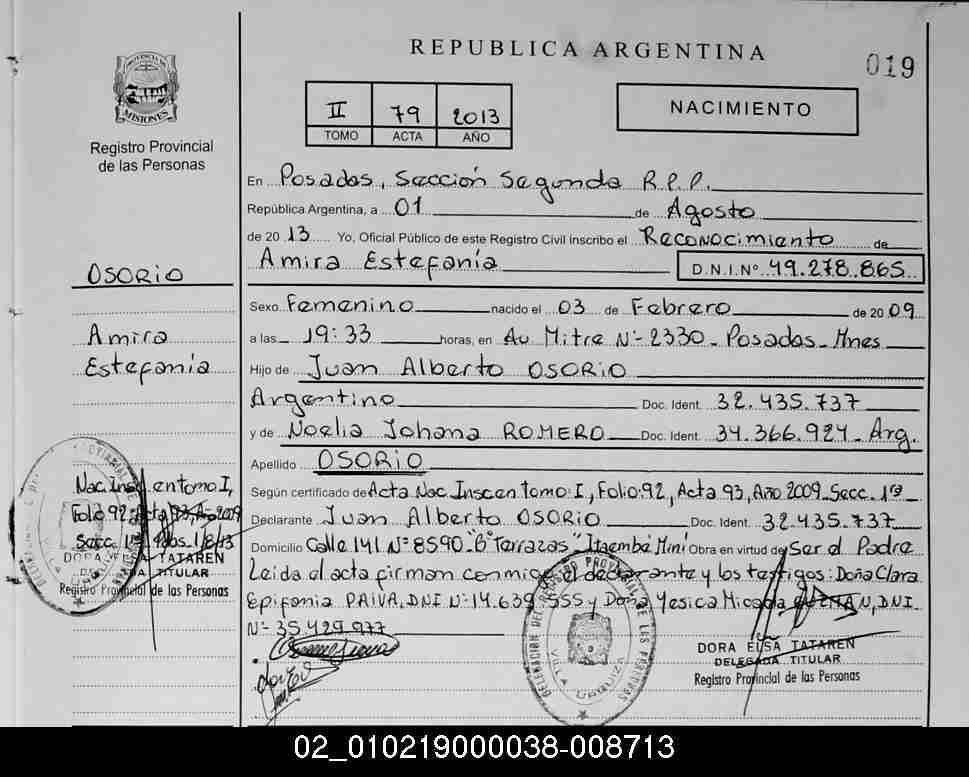 REPUBLICA ARGENTINA
019
PROVINCIA DE
MISIONES
Registro Provincial
de las Personas
II 79 2013
TOMO ACTA AÑO
NACIMIENTO
En Posadas, Sección Segunda R.P.P.
República Argentina, a 01 de Agosto
de 2013 Yo, Oficial Público de este Registro Civil inscribo el Reconocimiento de
Amira Estefanía D.N.I.Nº 49.278.865
OSORIO
Sexo Femenino nacido el 03 de Febrero de 2009
Amira
Estefanía
a las 19:33 horas, en Av. Mitre Nº 2330 - Posadas - Mnes
Hijo de Juan Alberto OSORIO
Argentino Doc. Ident. 32.435.737
y de Noelia Johana ROMERO Doc. Ident. 34.366.924 - Arg.
Apellido OSORIO
Nac. Insc. en tomo I,
Folio 92, Acta 93, Año 2009
Secc. 1ª Pdas. 1/8/13
Según certificado de Acta Nac. Insc en tomo: I, Folio: 92, Acta 93, Año 2009 Secc. 1ª
Declarante Juan Alberto OSORIO Doc. Ident. 32.435.737
Domicilio Calle 141 Nº 8590 "Bº Terrazas" Itaembé Miní Obra en virtud de Ser el Padre
Leída el acta firman conmigo el declarante y los testigos: Doña Clara
Epifania PAIVA, DNI Nº 14.639.555 y Doña Yesica Micaela GUZMAN, DNI
Nº 35.429.977
DORA ELSA TATAREN
DELEGADA TITULAR
Registro Provincial de las Personas
DELEGACION DEL REGISTRO PROVINCIAL DE LAS PERSONAS
VILLA URQUIZA
DORA ELSA TATAREN
DELEGADA TITULAR
Registro Provincial de las Personas
02_010219000038-008713